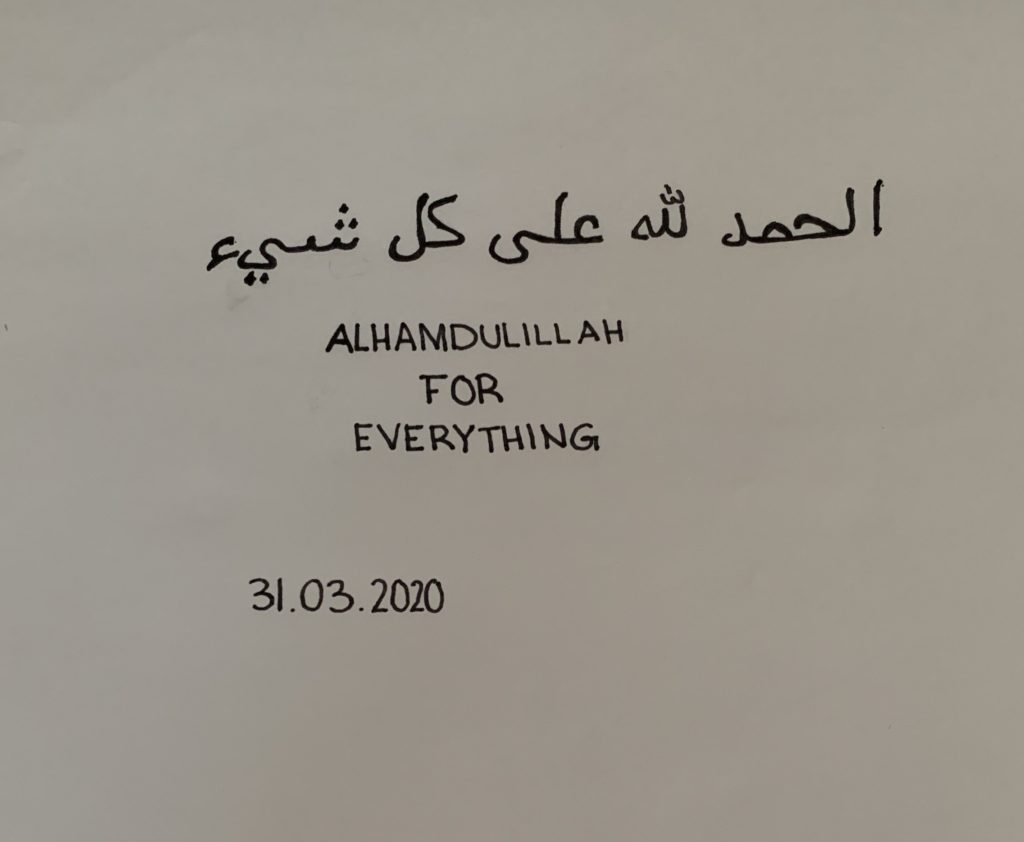 الحمد لله على كل شيء
ALHAMDULILLAH
FOR
EVERYTHING
31.03.2020